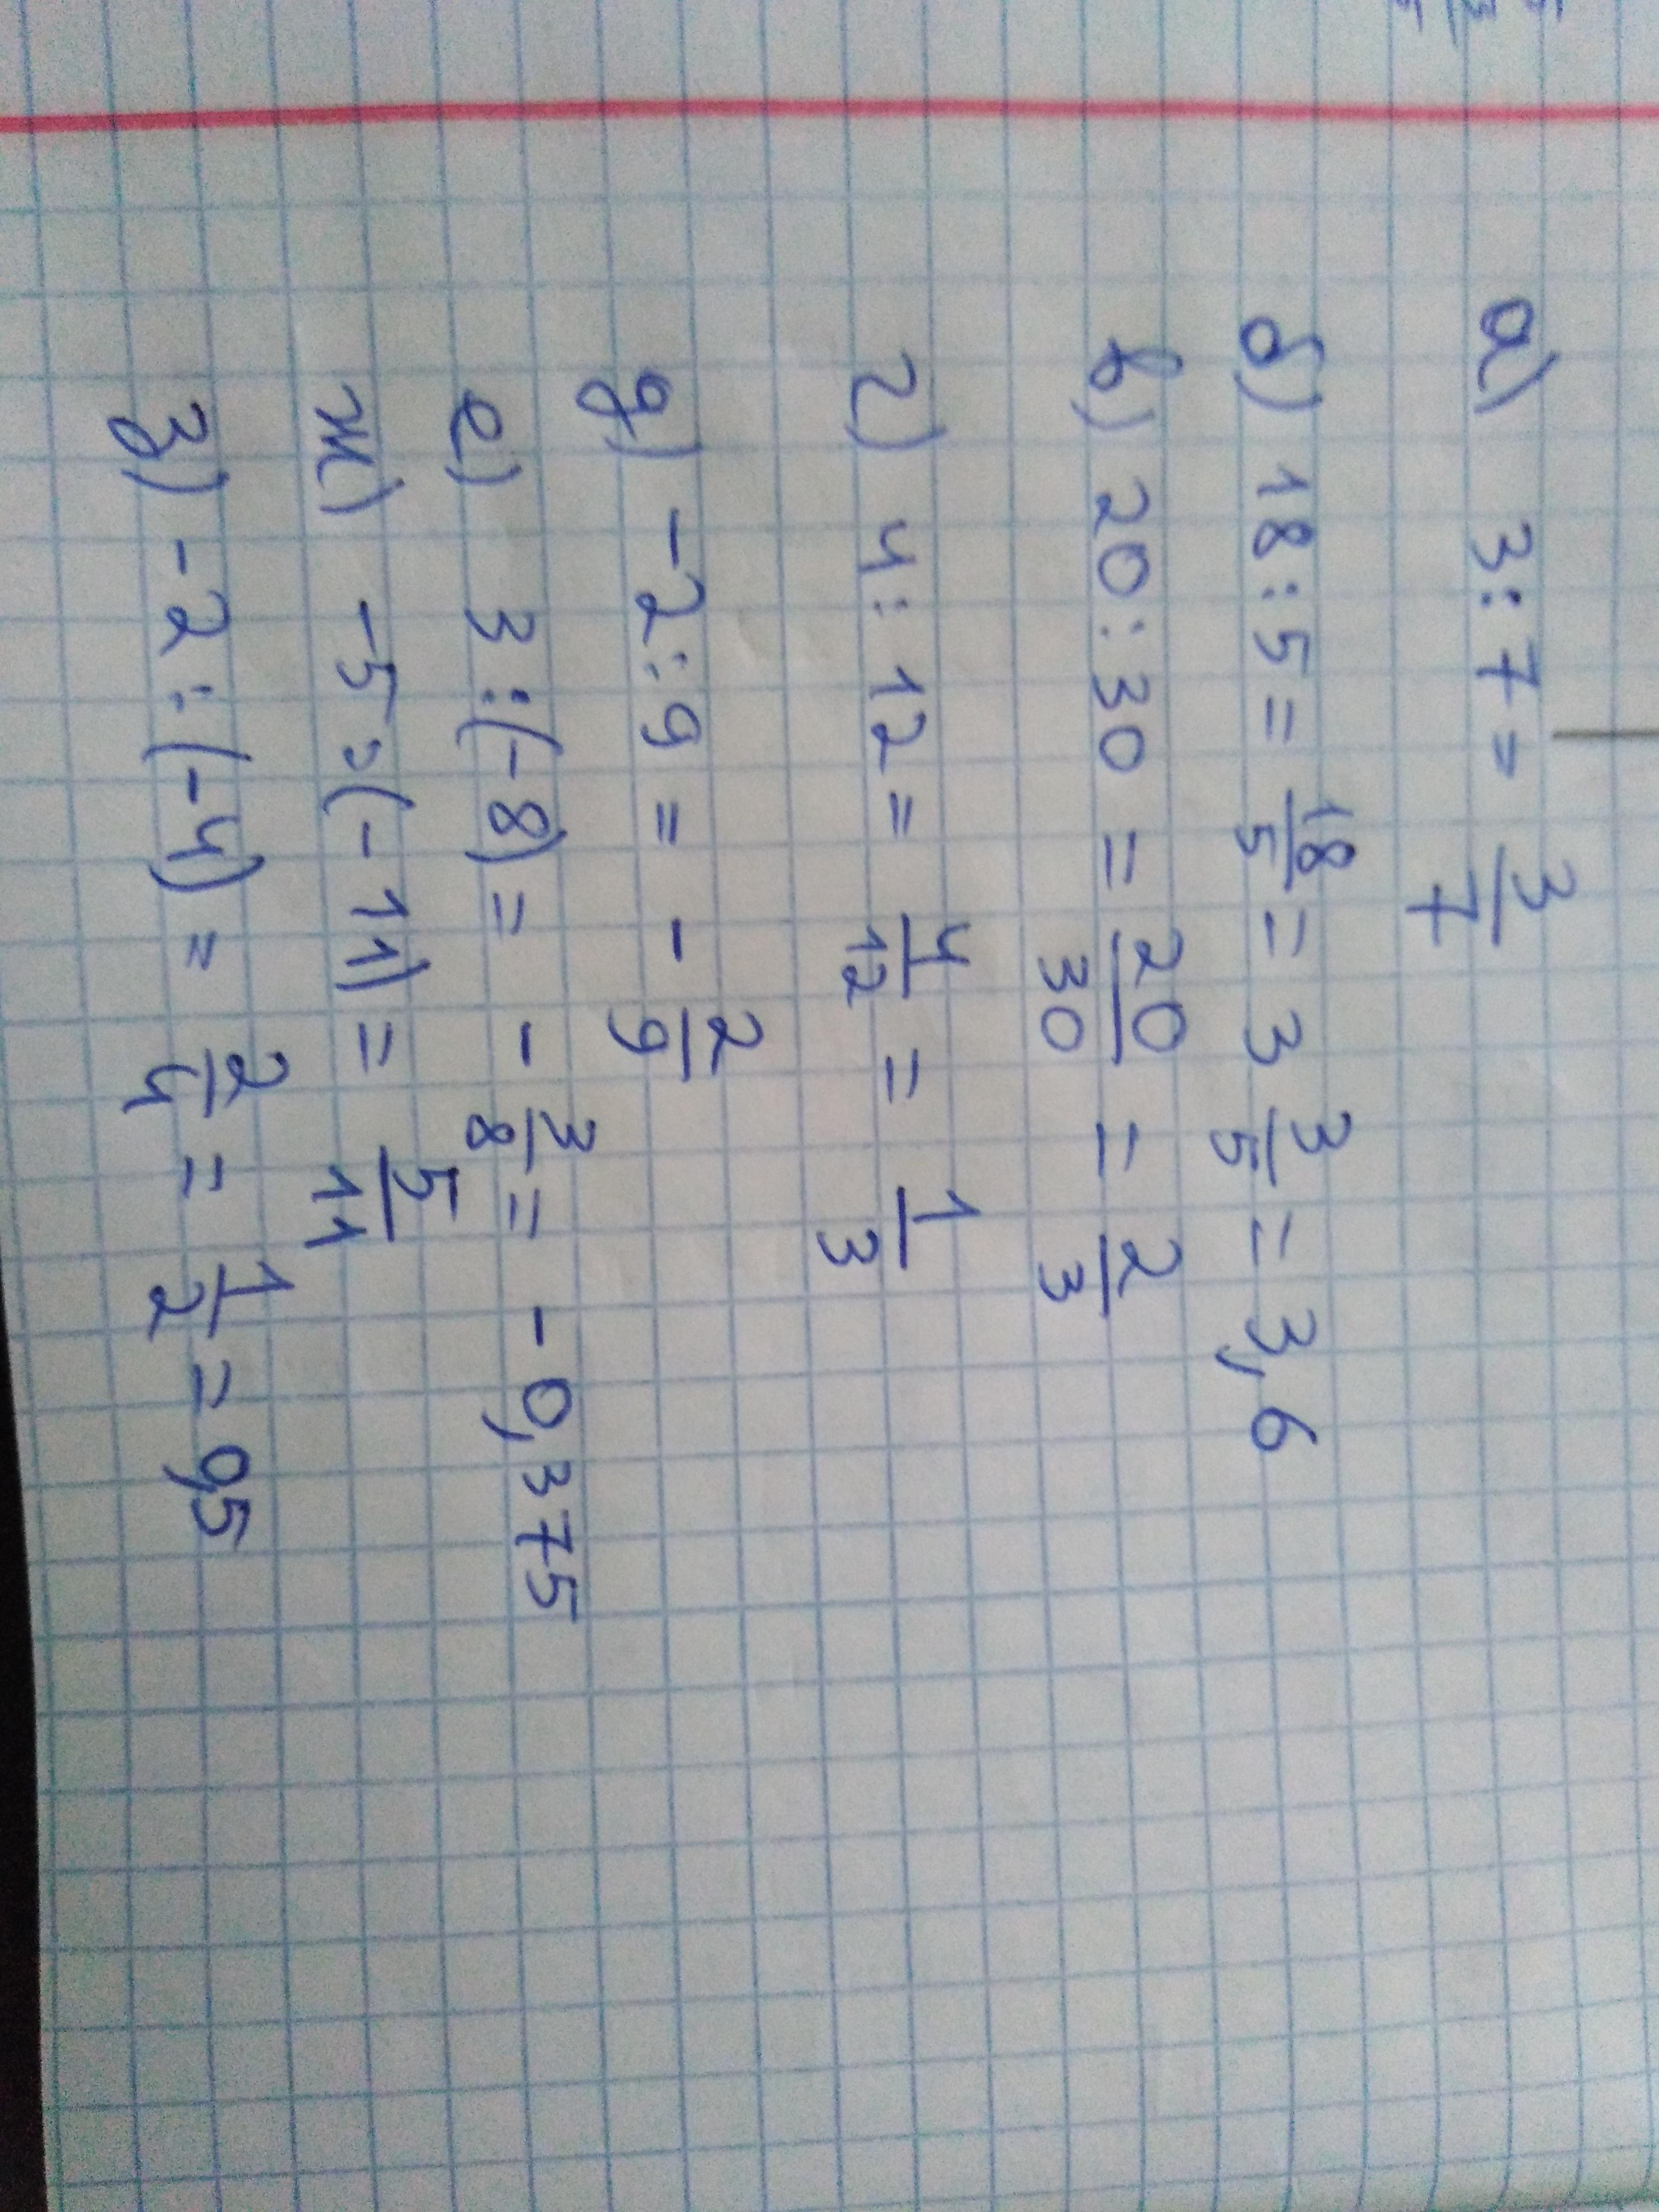 а) 3:7 = 3/7
б) 18:5 = 18/5 = 3 3/5 = 3,6
в) 20:30 = 20/30 = 2/3
г) 4:12 = 4/12 = 1/3
д) -2:9 = - 2/9
е) 3:(-8) = - 3/8 = -0,375
ж) -5:(-11) = 5/11
з) -2:(-4) = 2/4 = 1/2 = 0,5